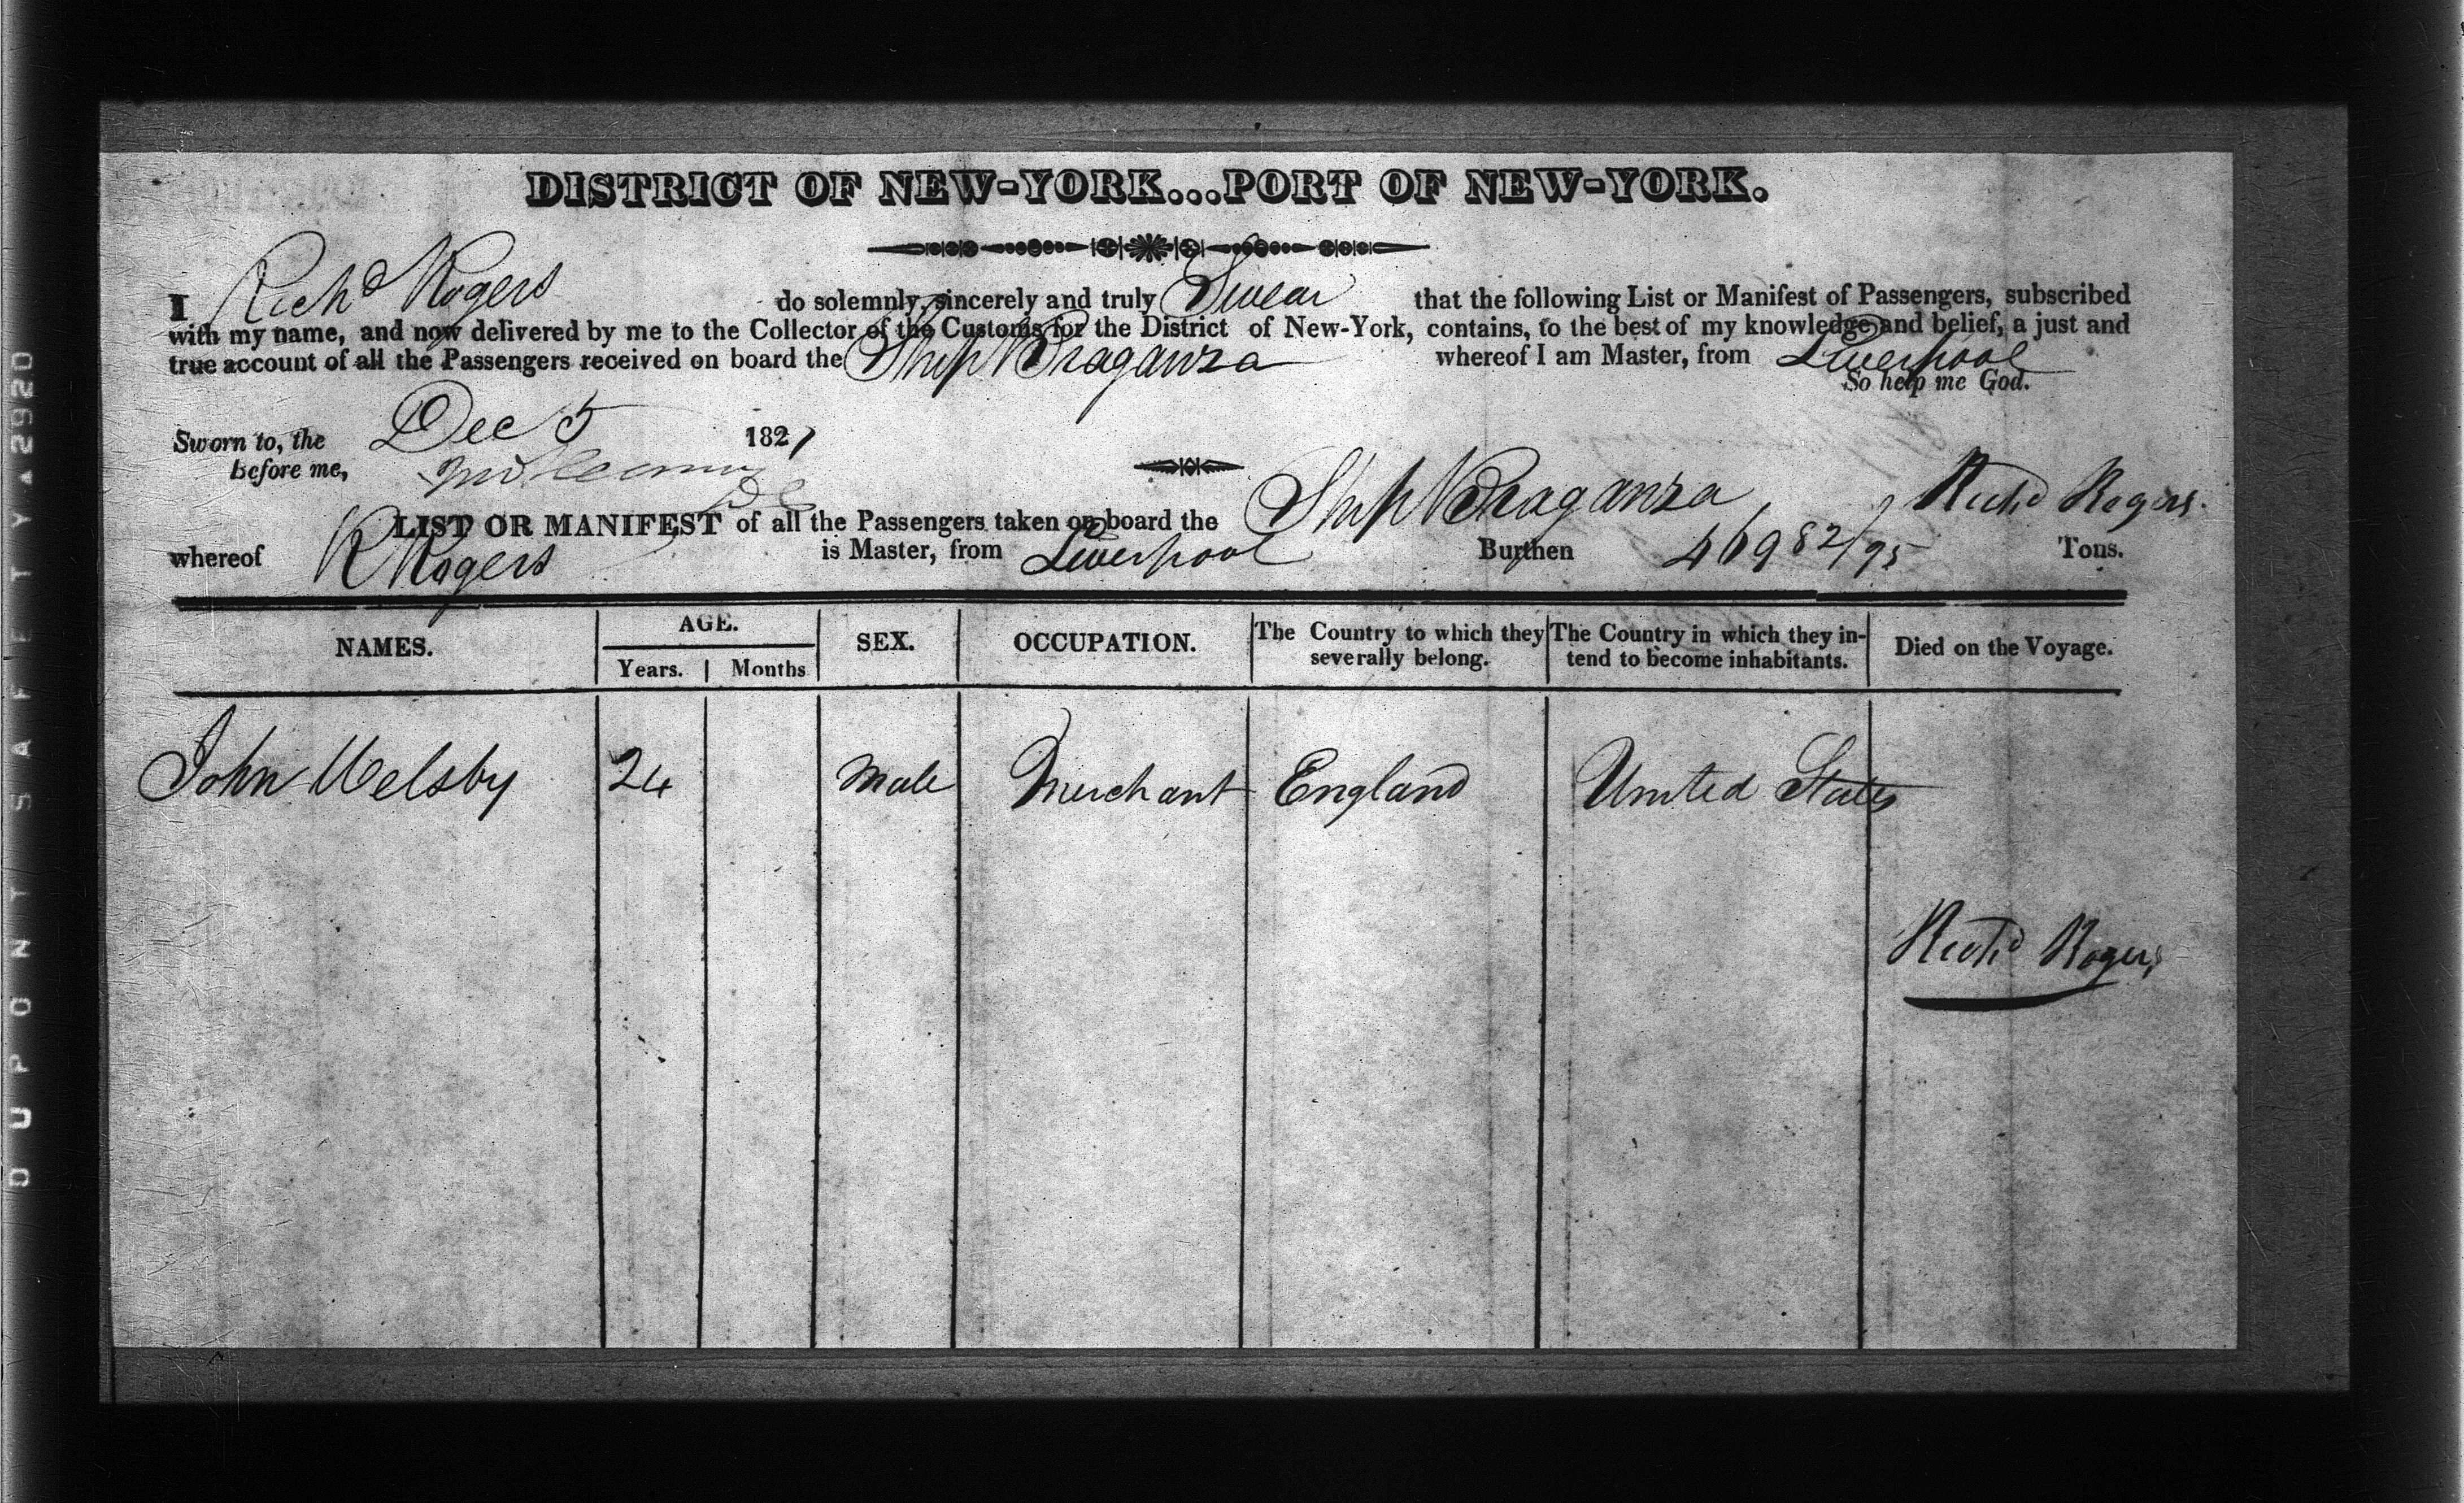 DISTRICT OF NEW-YORK...PORT OF NEW-YORK.
I Richd Rogers do solemnly, sincerely and truly Swear that the following List or Manifest of Passengers, subscribed
with my name, and now delivered by me to the Collector of the Customs for the District of New-York, contains, to the best of my knowledge and belief, a just and
true account of all the Passengers received on board the Ship Braganza whereof I am Master, from Liverpool
So help me God.
Sworn to, the Dec 5 182
Before me,
Richd Rogers.
LIST OR MANIFEST of all the Passengers taken on board the Ship Braganza
whereof R Rogers is Master, from Liverpool Burthen 469 82/95 Tons.
NAMES. AGE. SEX. OCCUPATION. The Country to which they severally belong. The Country in which they intend to become inhabitants. Died on the Voyage.
Years. Months
John Welsby 24 Male Merchant England United States
Richd Rogers
DUPONT SAFETY ▲2920